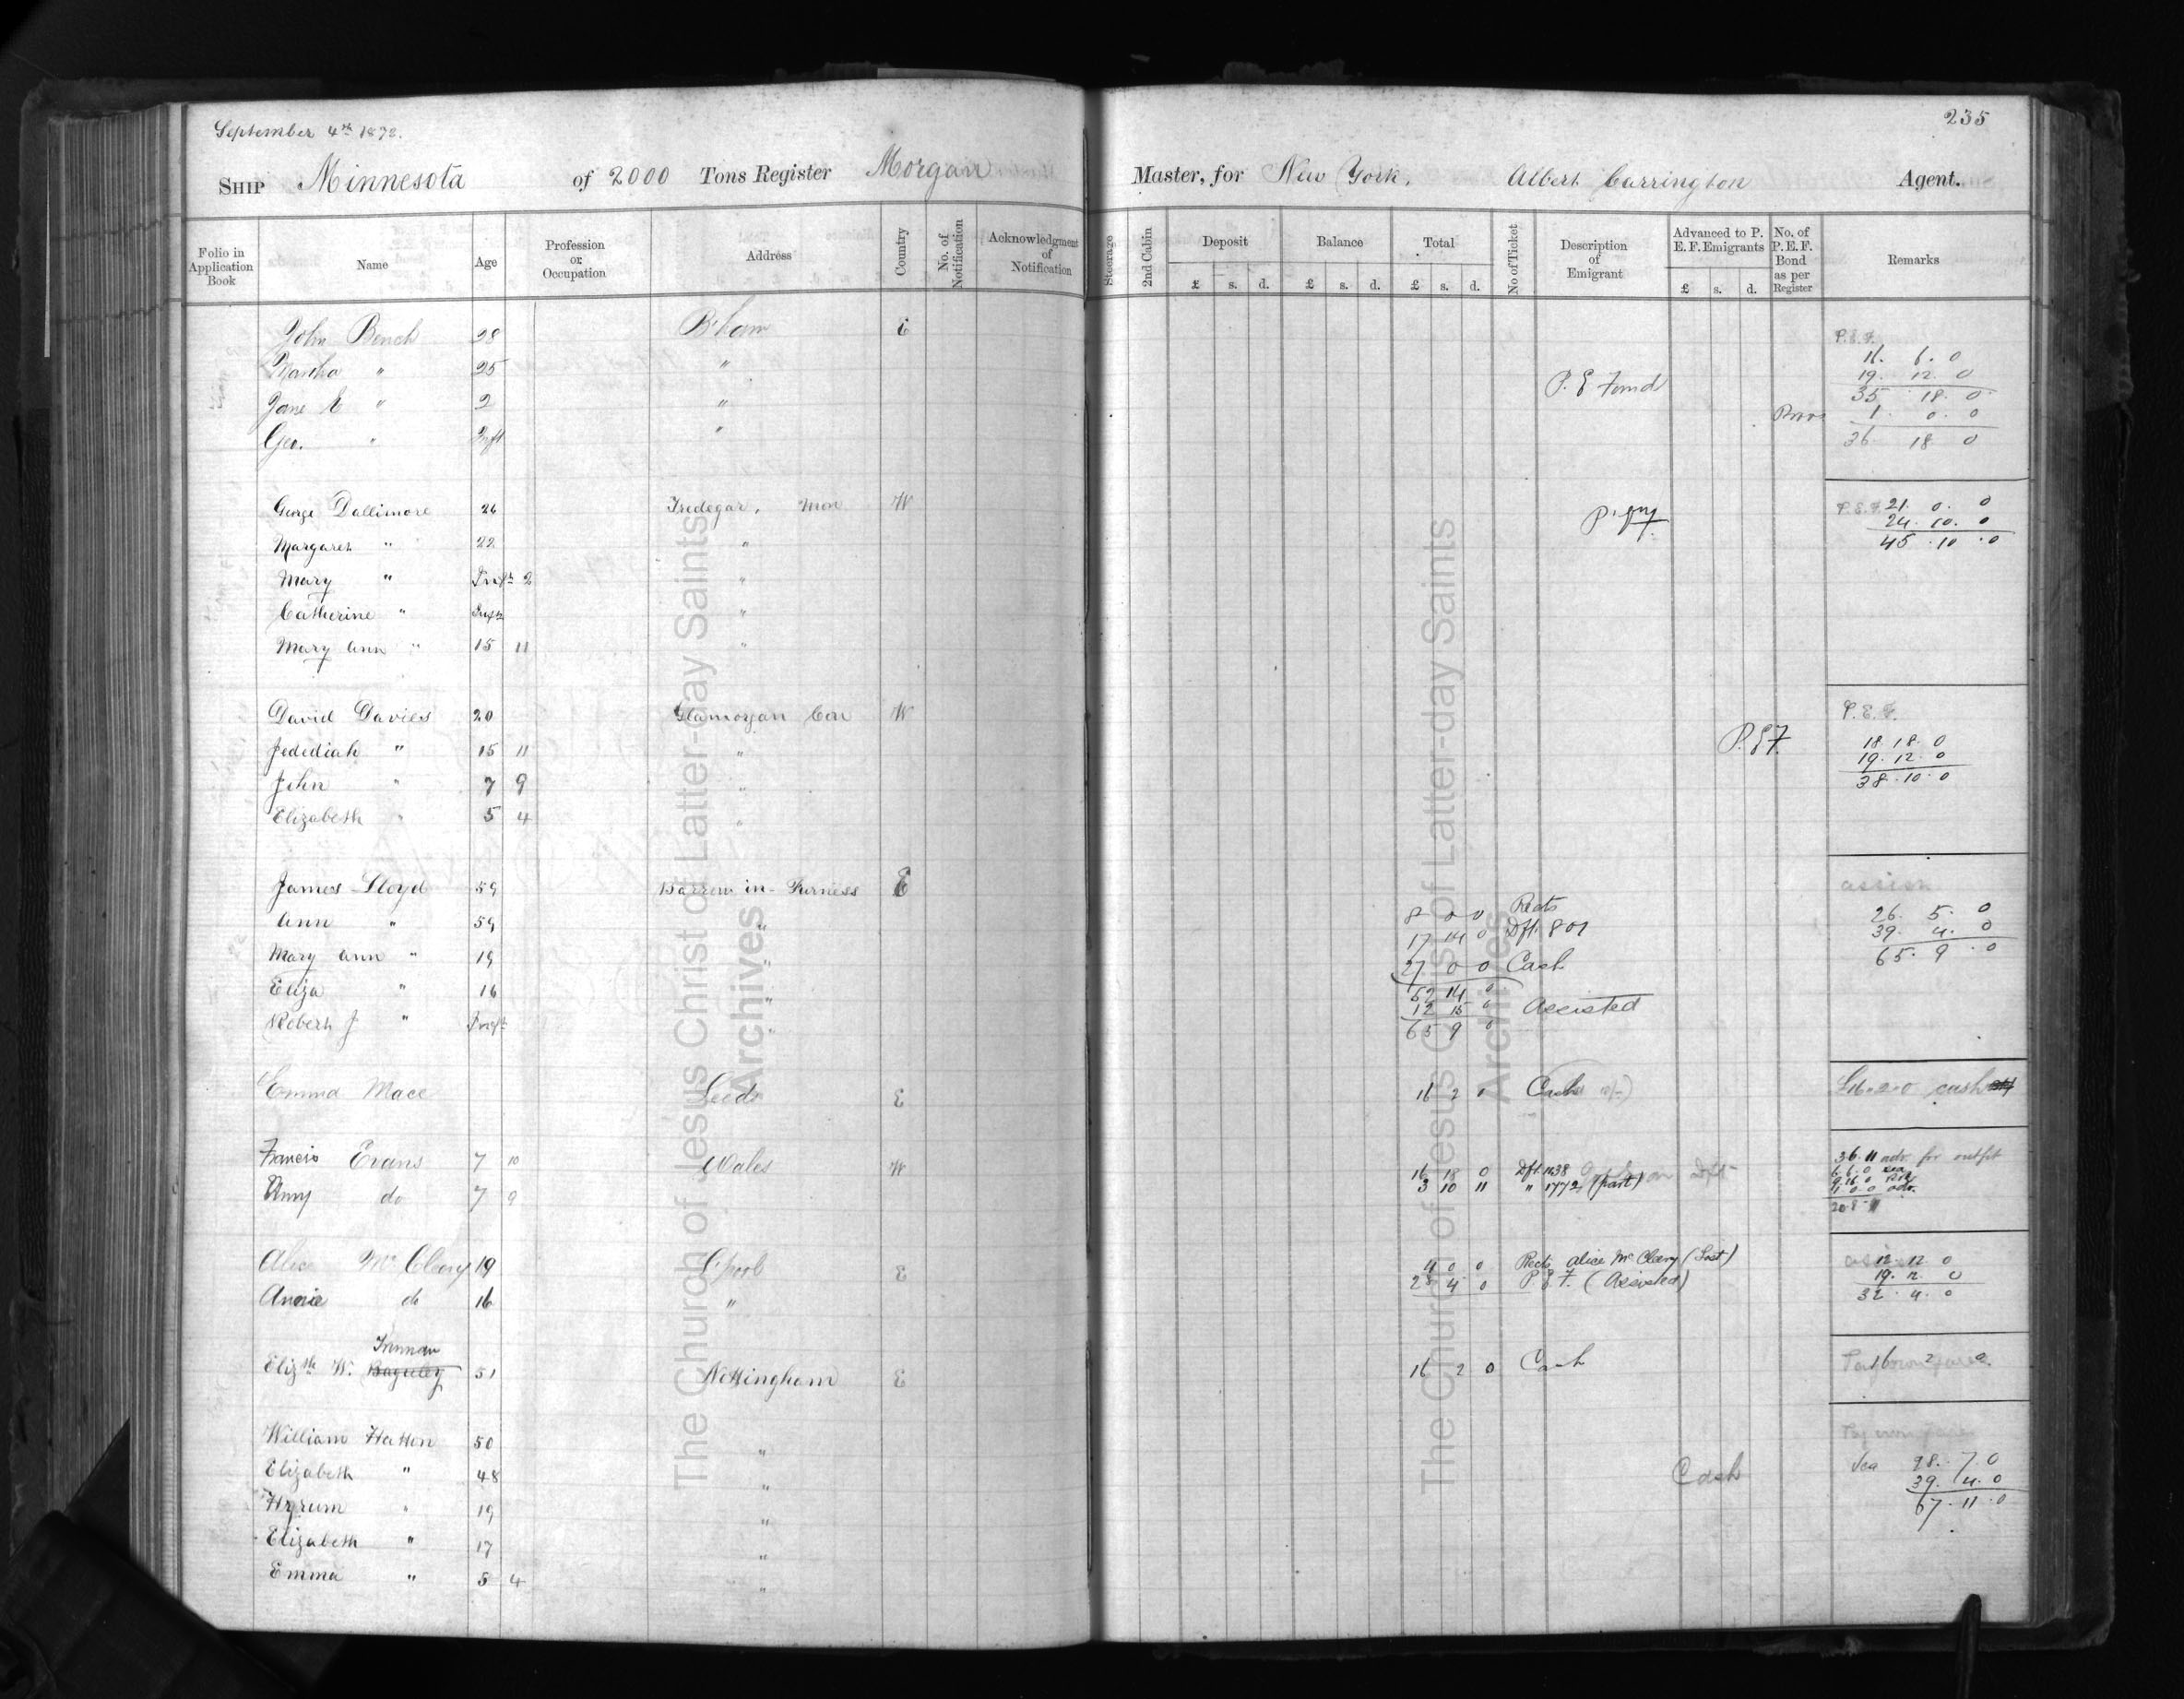 September 4th 1872.
235
SHIP Minnesota of 2000 Tons Register Morgan Master, for New York, Albert Carrington Agent.
Folio in Application Book Name Age Profession or Occupation Address Country No. of Notification Acknowledgment of Notification Steerage 2nd Cabin Deposit Balance Total No of Ticket Description of Emigrant Advanced to P. E. F. Emigrants No. of P. E. F. Bond as per Register Remarks
£ s. d. £ s. d. £ s. d. £ s. d.
John Bench 28 B'ham E P.E.F.
Martha " 25 " P. E Fund 16. 6. 0
19. 12. 0
Jane E " 2 " 35 18. 0
1. 0. 0
Geo. " Inft " 36 18 0
George Dallimore 26 Tredegar, Mon W P.E.F. 21. 0. 0
24. 10. 0
Margaret " 22 " 45. 10. 0
Mary " Inft 2 "
Catherine " Inft "
Mary Ann " 15 11 "
David Davies 20 Glamorgan Con W P.E.F. P.E.F.
Jedediah " 15 11 " 18. 18. 0
19. 12. 0
John " 7 9 " 38. 10. 0
Elizabeth " 5 4 "
James Lloyd 59 Barrow in Furness E assist
Ann " 59 " 8 0 0 Rects 26. 5. 0
17 14 0 Dft. 801 39. 4. 0
Mary Ann " 19 " 27 0 0 Cash 65. 9. 0
Eliza " 16 " 52 14 0
12 15 0 Assisted
Robert J " Inft " 65 9 0
Emma Mace Leeds E 16 2 0 Cash £16.2.0 cash
Francis Evans 7 10 Wales W 16 18 0 Dft. 1638 36.11 adv. for outfit
3 10 11 " 1772 (part) 6.6.0 sea
Amy do 7 9 9.16.0
20.8.11
Alice McCleary 19 L'pool E 4 0 0 Rects Alice McCleary (Lost) 12. 12. 0
28 4 0 P.E.F. (Assisted) 19. 12. 0
Annie do 16 " 32. 4. 0
Elizth W. Baguley 51 Nottingham E 16 2 0 Cash 16 2 0
William Hatton 50 "
Elizabeth " 48 " Cash Sea 28. 7. 0
39. 4. 0
Hyrum " 19 " 67. 11. 0
Elizabeth " 17 "
Emma " 5 4 "
The Church of Jesus Christ of Latter-day Saints
Archives
The Church of Jesus Christ of Latter-day Saints
Archives